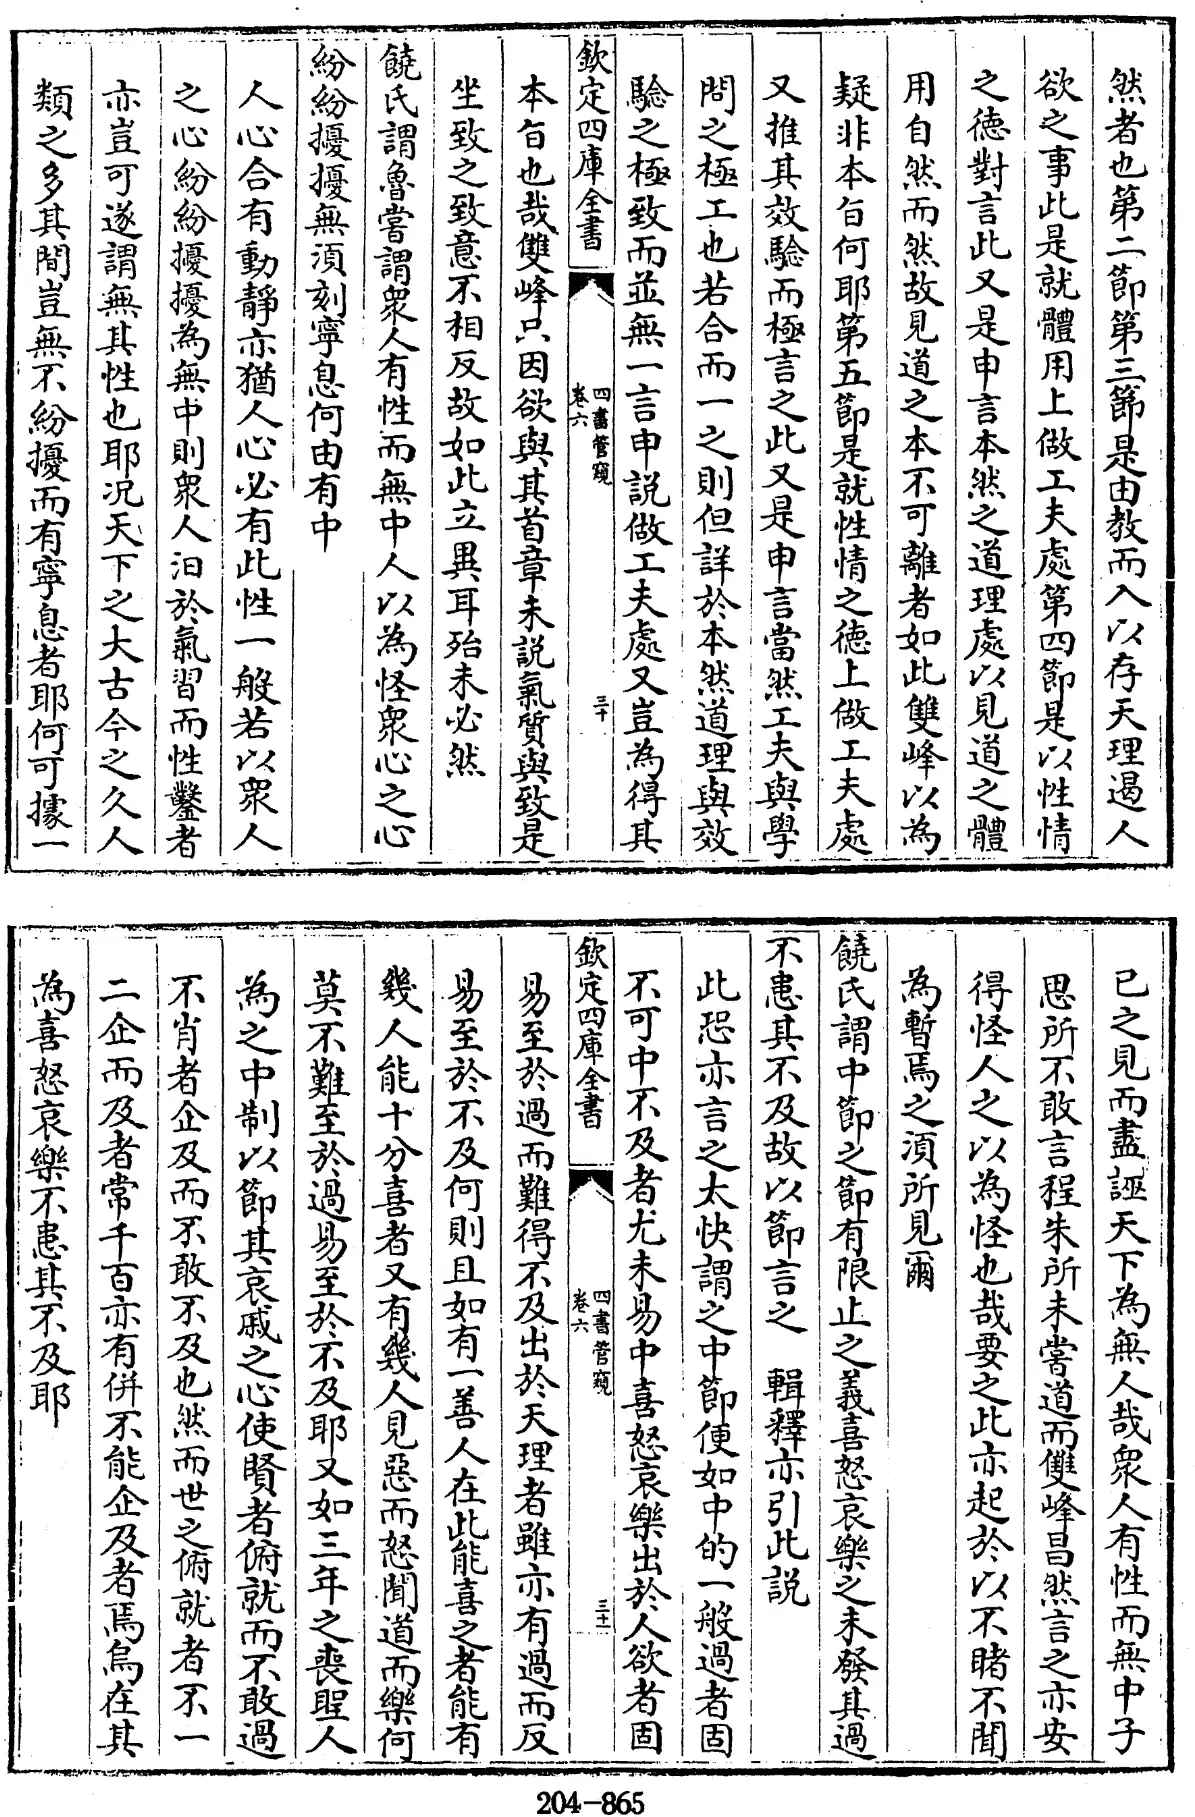 然者也第二節第三節是由教而入以存天理遏人
欲之事此是就體用上做工夫處第四節是以性情
之德對言此又是申言本然之道理處以見道之體
用自然而然故見道之本不可離者如此雙峰以為
疑非本旨何耶第五節是就性情之德上做工夫處
又推其效驗而極言之此又是申言當然工夫與學
問之極工也若合而一之則但詳於本然道理與效
驗之極致而並無一言申說做工夫處又豈為得其
欽定四庫全書
四書管窺
卷六
三十
本旨也哉雙峰只因欲與其首章未說氣質與致是
坐致之致意不相反故如此立異耳殆未必然
饒氏謂魯嘗謂衆人有性而無中人以為怪衆心之心
紛紛擾擾無須刻寧息何由有中
人心合有動靜亦猶人心必有此性一般若以衆人
之心紛紛擾擾為無中則衆人汩於氣習而性鑿者
亦豈可遂謂無其性也耶况天下之大古今之久人
類之多其間豈無不紛擾而有寧息者耶何可據一
已之見而盡誣天下為無人哉衆人有性而無中子
思所不敢言程朱所未嘗道而雙峰昌然言之亦安
得怪人之以為怪也哉要之此亦起於以不睹不聞
為暫焉之湏所見爾
饒氏謂中節之節有限止之義喜怒哀樂之未發其過
不患其不及故以節言之 輯釋亦引此説
此恐亦言之太快謂之中節便如中的一般過者固
不可中不及者尤未易中喜怒哀樂出於人欲者固
欽定四庫全書
四書管窺
卷六
三十一
易至於過而難得不及出於天理者雖亦有過而反
易至於不及何則且如有一善人在此能喜之者能有
幾人能十分喜者又有幾人見惡而怒聞道而樂何
莫不難至於過易至於不及耶又如三年之喪聖人
為之中制以節其哀戚之心使賢者俯就而不敢過
不肖者企及而不敢不及也然而世之俯就者不一
二企而及者常千百亦有併不能企及者焉烏在其
為喜怒哀樂不患其不及耶
204-865